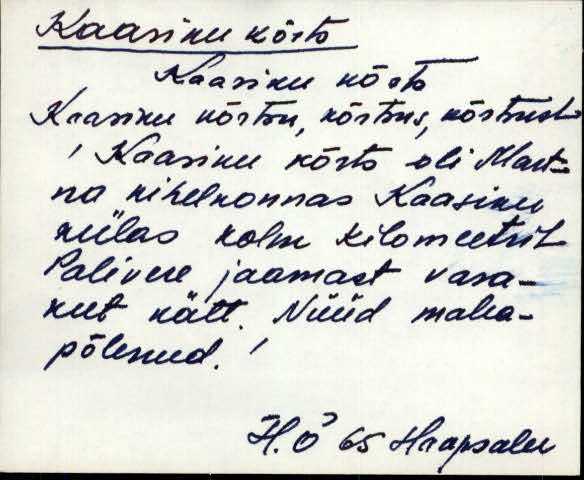 Kaasiku kõrts
Kaasiku kõrts
Kaasiku kõrtsu, kõrtsus, kõrtsust
! Kaasiku kõrts oli Mart-
na kihelkonnas Kaasiku
külas kolm kilomeetrit
Palivere jaamast vasa-
kut kätt. Nüüd maha-
põlenud. !
H. Õ 65 Haapsalu